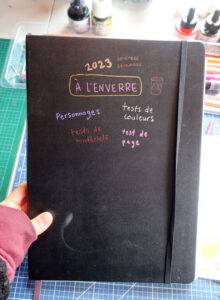 2023
À L'ENVERRE
Personnages
tests de
couleurs
tests de
matériels
test de
page